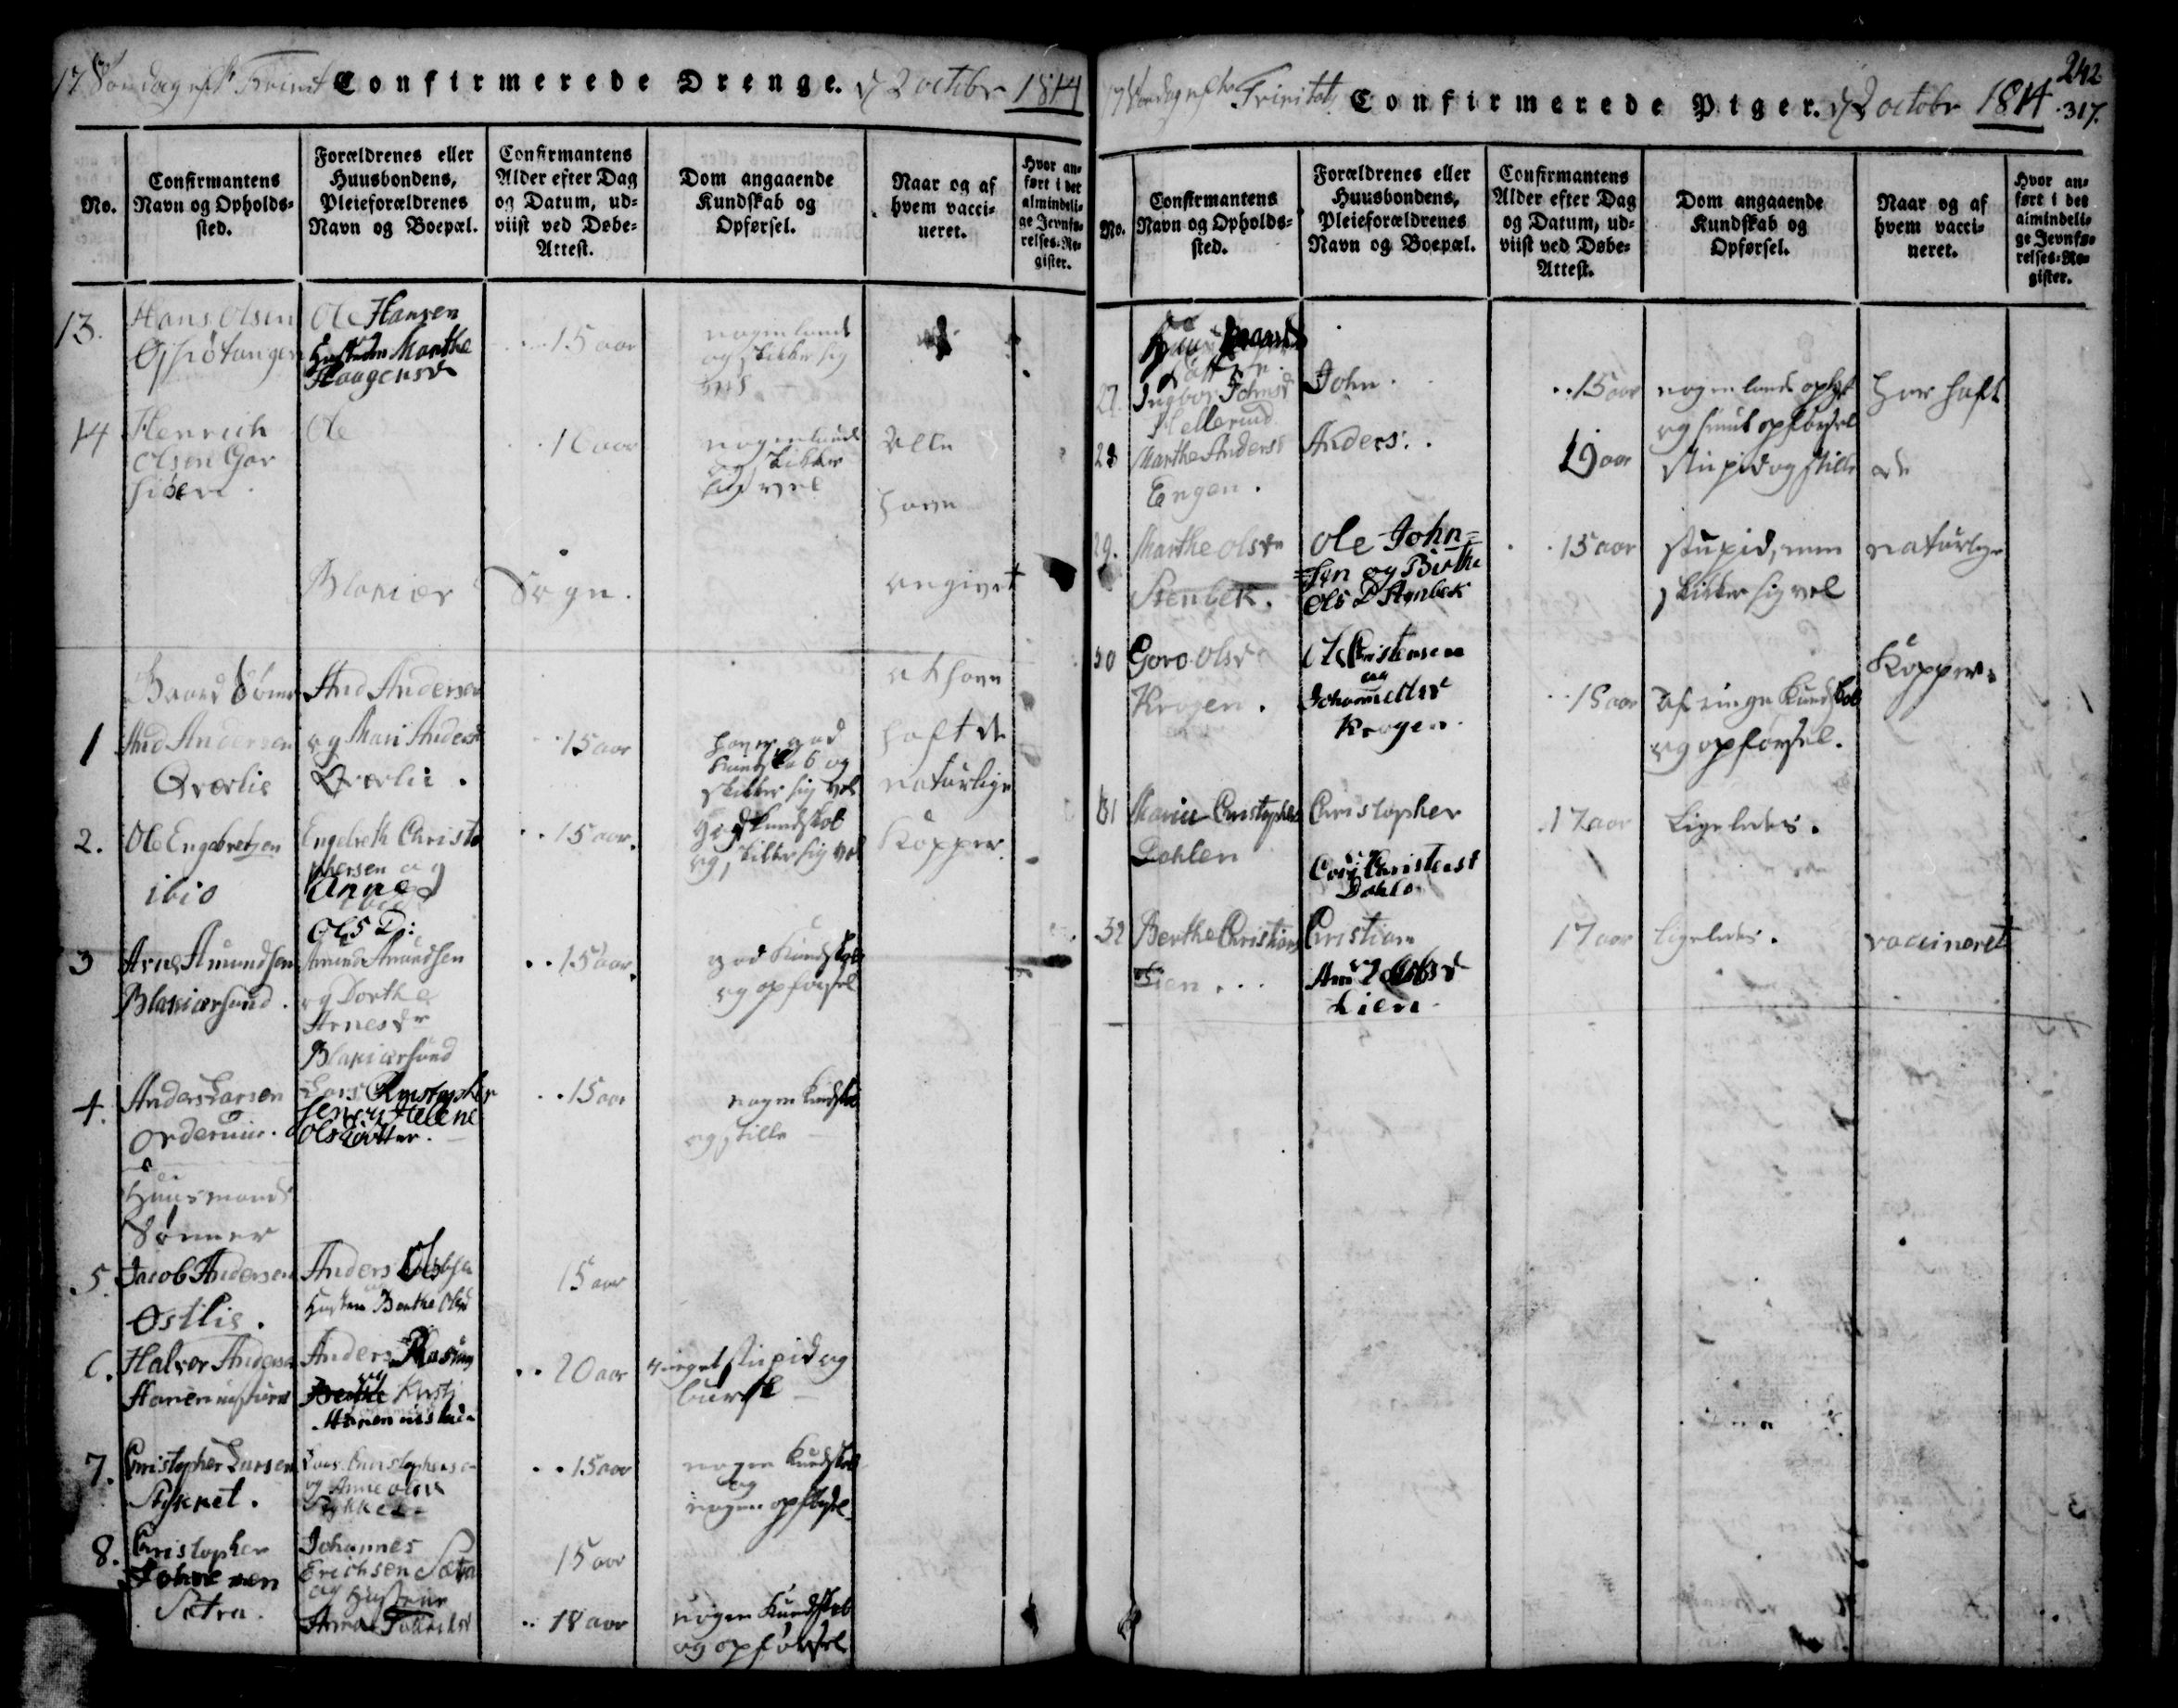 17 Søndag eft Trinit Confirmerede Drenge. d 2 octobr 1814
No.
Confirmantens
Navn og Opholds-
sted.
Forældrenes eller
Huusbondens,
Pleieforældrenes
Navn og Boepæl.
Confirmantens
Alder efter Dag
og Datum, ud-
viist ved Døbe-
Attest.
Dom angaaende
Kundskab og
Opførsel.
Naar og af
hvem vacci-
neret.
Hvor an-
ført i det
almindeli-
ge Jevnfø-
relses-Re-
gister.
13.
Hans Olsen
Ole Hansen
Marthe
Haagensd
15 aar
nogenlunde
og skikker sig
14
Henrich
Olsen
Ole
16 aar
nogenlunde
og skikker
sig vel
Alle
have
Blakier Sogn.
angivet
Gaard Sønner
at have
haft de
naturlige
Kopper.
1
And Andersen
Qværlie
And Andersen
og Mari Andersd
Qværlie.
15 aar
haver god
Kundskab og
skikker sig vel
2.
Ole Engebretsen
ibid
Engebreth Christo
phersen og
Anne
Ols D:
15 aar.
god Kundskab
og skikker sig vel
3
Arne Amundsen
Blakiersund.
Amund Amundsen
og Dorthe
Arnesdr
Blakiersund
15 aar.
god Kundskab
og opførsel
4.
Anders Larsen
Lars Christopher
sen og Helene
Olsdatter.
15 aar
nogen Kundskab
og stille
Huusmands
Sønner
5.
Jacob Andersen
Østlie.
Anders
Berthe Olsd
15 aar
6.
Halvor Andersen
Anders
20 aar
meget stupid og
7.
Christopher Larsen
Stykket.
Lars Christophersen
og Anne Olsd
Stykket
15 aar
nogen Kundskab
og
nogen opførsel
8.
Christopher
Sætra.
Johannes
Erichsen Sætra
og Hustrue
15 aar
18 aar
nogen Kundskab
og opførsel
17 Søndag efter Trinitat Confirmerede Piger. d 2 octobr 1814
242
317.
No.
Confirmantens
Navn og Opholds-
sted.
Forældrenes eller
Huusbondens,
Pleieforældrenes
Navn og Boepæl.
Confirmantens
Alder efter Dag
og Datum, ud-
viist ved Døbe-
Attest.
Dom angaaende
Kundskab og
Opførsel.
Naar og af
hvem vacci-
neret.
Hvor an-
ført i det
almindeli-
ge Jevnfø-
relses-Re-
gister.
27.
Ingbor Johnsd
Hellerud
John.
15 aar
nogenlunde
og opførsel
har haft
28
Marthe Andersd
Engen.
Anders.
19 aar
stupid og stille
de
29.
Marthe Olsdr
Stenbek.
Ole John=
=sen og Birthe
Ols D Stenbek
15 aar
stupid, men
skikker sig vel
naturlige
30
Goro Olsdr
Krogen.
Ole Christensen
og
Krogen.
15 aar
af ringe Kundskab
og opførsel.
Kopper.
31
Marie Christophersd
Dahlen
Christopher
Christensd
17 aar
Ligeledes.
32
Berthe Christiansd
Lien...
Christian
Lien
17 aar
ligeledes.
vaccineret